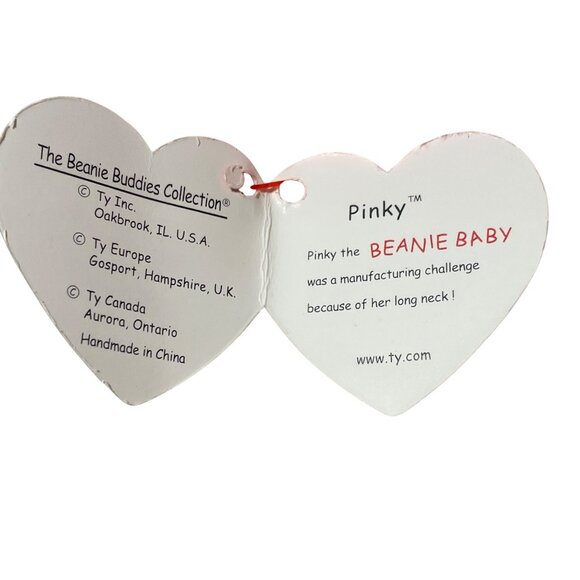 The Beanie Buddies Collection®
© Ty Inc.
Oakbrook, IL. U.S.A.
© Ty Europe
Gosport, Hampshire, U.K.
© Ty Canada
Aurora, Ontario
Handmade in China
Pinky™
Pinky the BEANIE BABY
was a manufacturing challenge
because of her long neck !
www.ty.com